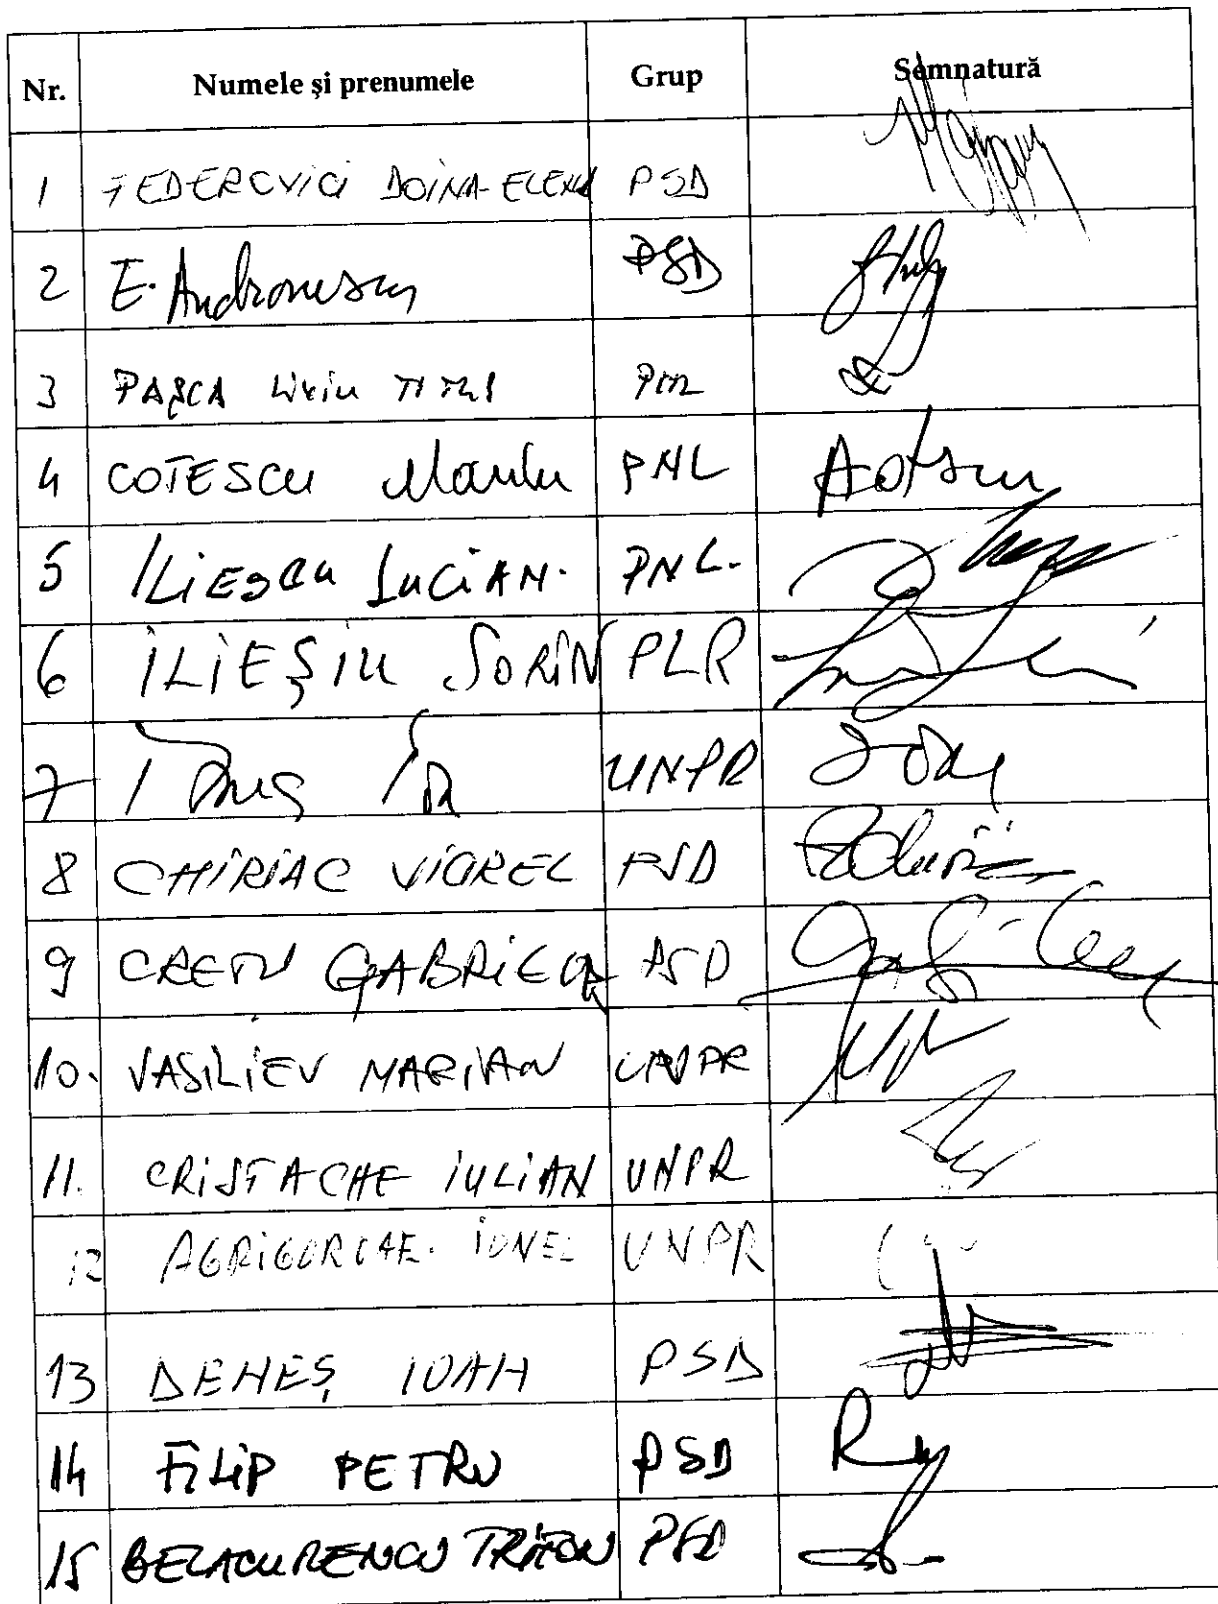 Nr. Numele şi prenumele Grup Semnatură
1 FEDEROVICI DOINA-ELENA PSD
2 E. Andronescu PSD
3 PAŞCA Liviu TITUS PNL
4 COTESCU Marin PNL
5 ILIESCU LUCIAN. PNL.
6 ILIEŞIU SORIN PLR
7 UNPR
8 CHIRIAC VIOREL PSD
9 CREȚU GABRIELA PSD
10. VASILIEV MARIAN UNPR
11. CRISTACHE IULIAN UNPR
12 AGRIGOROAE. IONEL UNPR
13 DENEŞ IOAN PSD
14 FILIP PETRU PSD
15 BELACURENCU TRIFON PSD